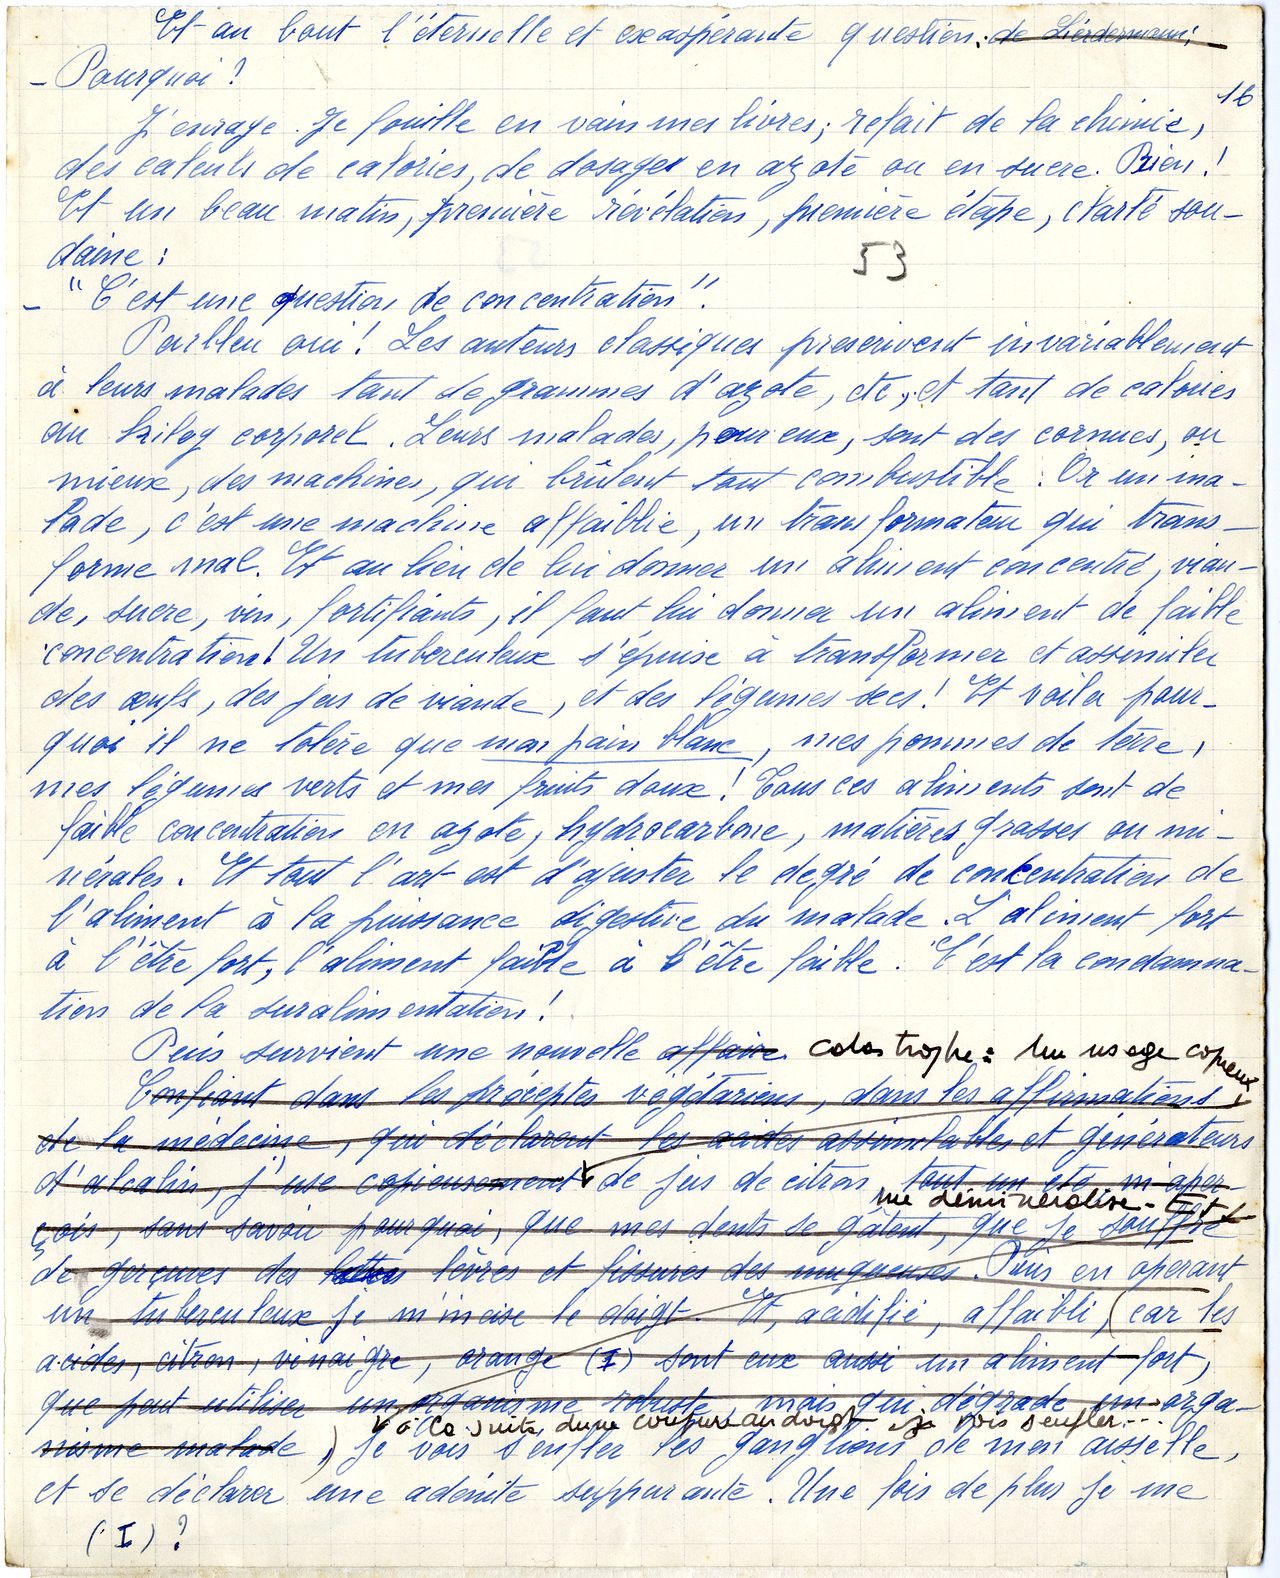 Et au bout l'éternelle et exaspérante question: de Liedermann:
- Pourquoi?
16
J'enrage. Je fouille en vain mes livres; refait de la chimie,
des calculs de calories, de dosages en azote ou en sucre. Rien!
Et un beau matin, première révélation, première étape, clarté sou-
daine:
53
- "C'est une question de concentration".
Parbleu oui! Les auteurs classiques prescrivent invariablement
à leurs malades tant de grammes d'azote, etc, et tant de calories
au kilog corporel. Leurs malades, pour eux, sont des cornues, ou
mieux, des machines, qui brûlent tout combustible. Or un ma-
lade, c'est une machine affaiblie, un transformateur qui trans-
forme mal. Et au lieu de lui donner un aliment concentré, vian-
de, sucre, vin, fortifiants, il faut lui donner un aliment de faible
concentration! Un tuberculeux s'épuise à transformer et assimiler
des œufs, des jus de viande, et des légumes secs! Et voila pour-
quoi il ne tolère que mon pain blanc, mes pommes de terre,
mes légumes verts et mes fruits doux! Tous ces aliments sont de
faible concentration en azote, hydrocarbone, matières grasses ou mi-
nérales. Et tout l'art est d'ajuster le degré de concentration de
l'aliment à la puissance digestive du malade. L'aliment fort
à l'être fort, l'aliment faible à l'être faible. C'est la condamna-
tion de la suralimentation!
Puis survient une nouvelle affaire. catastrophe: Un usage copieux
Confiant dans les préceptes végétariens, dans les affirmations
de la médecine, qui déclarent les acides assimilables et générateurs
d'alcalin, j'use copieusement de jus de citron tout un été m'aper-
me déminéralise. Et
çois, sans savoir pourquoi, que mes dents se gâtent, que je souffre
de gerçures des lèvres et fissures des muqueuses. Puis en opérant
un tuberculeux je m'incise le doigt. Et, acidifié, affaibli, (car les
acides, citron, vinaigre, orange (I) sont eux aussi un aliment fort,
que peut utiliser un organisme robuste, mais qui dégrade un orga-
à la suite d'une coupure au doigt je vois s'enfler...
nisme malade), je vois s'enfler les ganglions de mon aisselle,
et se déclarer une adénite suppurante. Une fois de plus je me
(I)?